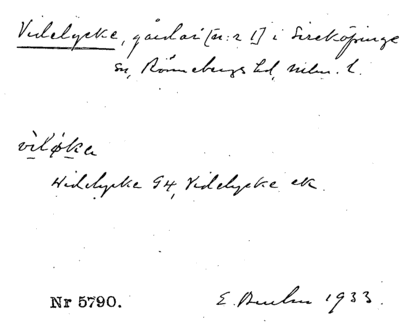 Videlycke, gårdar [n:r 1] i Sireköpinge
sn, Rönnebergs hd, Mlm. l.
vìløka
Widelycke G4, Videlycke ek.
Nr 5790. E. 1933.